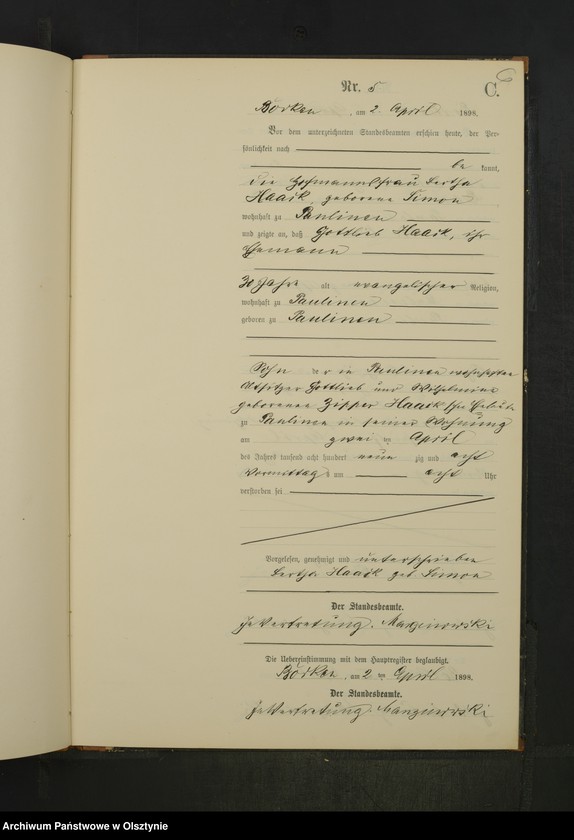 Nr. 5 C.
Borken, am 2. April 1898.
Vor dem unterzeichneten Standesbeamten erschien heute, der Per-
sönlichkeit nach
be kannt,
die Hofmannsfrau Bertha
Haaik, geborene Simon
wohnhaft zu Paulinen
und zeigte an, daß Gottlieb Haaik, ihr
Ehemann
30 Jahre alt evangelischer Religion,
wohnhaft zu Paulinen
geboren zu Paulinen
Sohn der in Paulinen wohnhaften
Altsitzer Gottlieb und Wilhelmine
geborenen Zipper Haaik
zu Paulinen in seiner Wohnung
am zwei ten April
des Jahres tausend acht hundert neun zig und acht
Vormittags um acht Uhr
verstorben sei
Vorgelesen, genehmigt und unterschrieben
Bertha Haaik geb Simon
Der Standesbeamte.
In Vertretung. Marzinowski
Die Uebereinstimmung mit dem Hauptregister beglaubigt.
Borken, am 2 ten April 1898.
Der Standesbeamte.
In Vertretung. Marzinowski
Archiwum Państwowe w Olsztynie